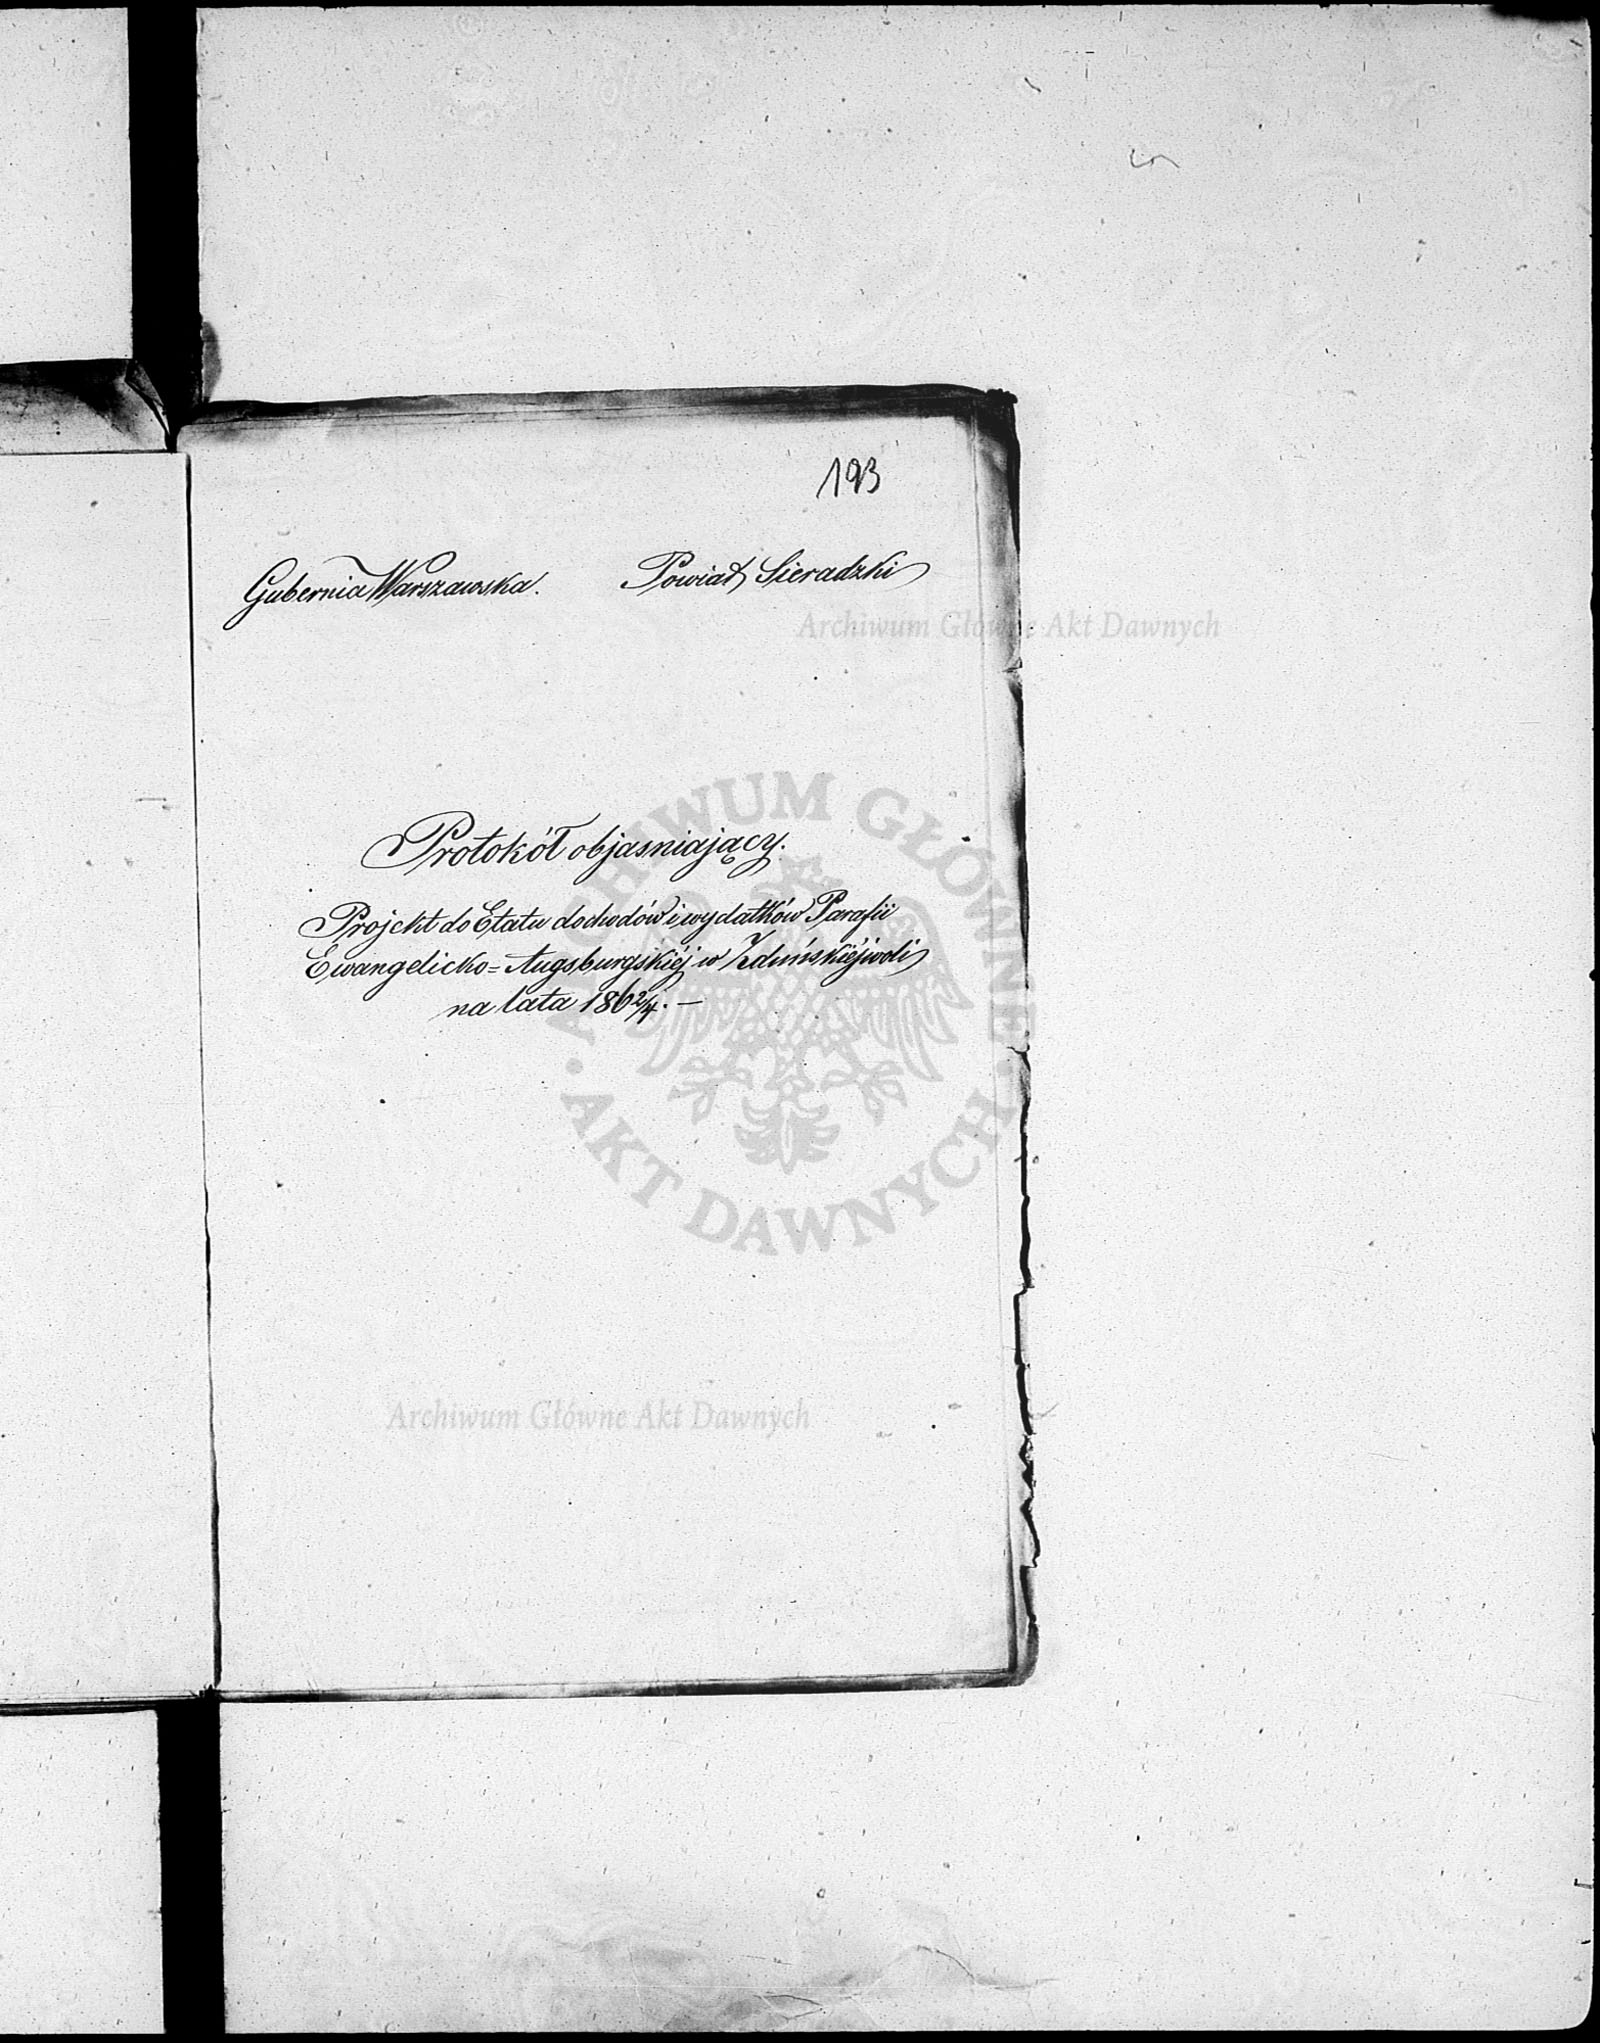 193
Gubernia Warszawska. Powiat Sieradzki
Archiwum Główne Akt Dawnych
Protokół objasniający.
Projekt do Etatu dochodów i wydatków Parafii
Ewangelicko= Augsburgskiéj w Zduńskiéjwoli
na lata 1862/4. —
ARCHIWUM GŁÓWNE · AKT DAWNYCH ·
Archiwum Główne Akt Dawnych